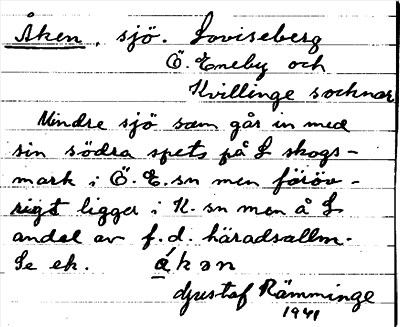 Åken, sjö. Loviseberg
Ö. Eneby och
Kvillinge socknar
Mindre sjö som går in med
sin södra spets på L skogs-
mark i Ö. E. sn men föröv-
rigt ligger i K. sn men å L
andel av f.d. häradsallm.
Se ek. ákən
Gustaf Rämminge
1941